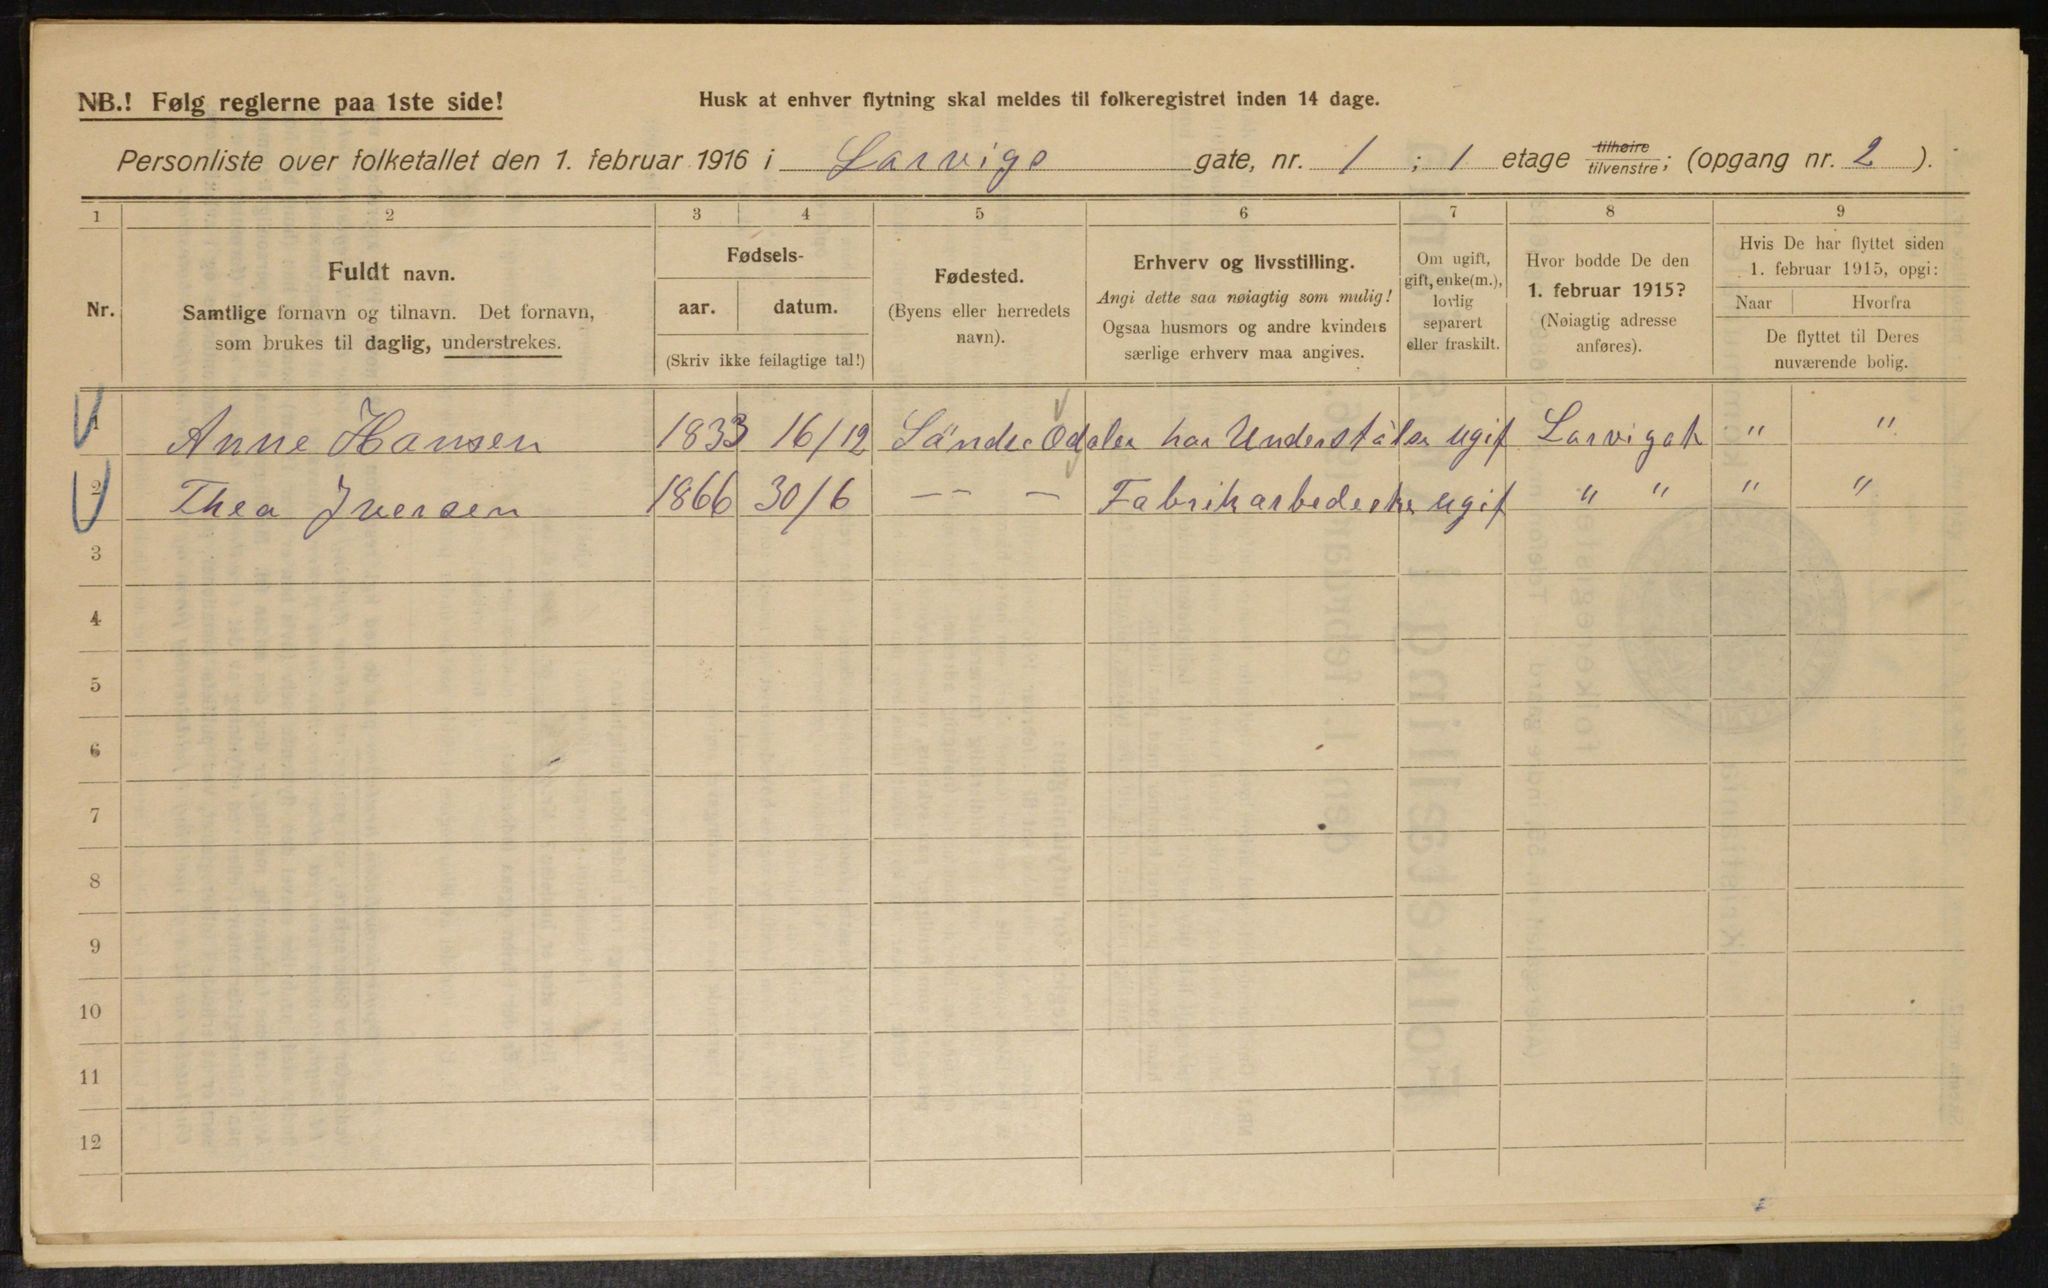 NB.! Følg reglerne paa 1ste side!
Husk at enhver flytning skal meldes til folkeregistret inden 14 dage.
Personliste over folketallet den 1. februar 1916 i Larvigs gate, nr. 1 ; 1 etage tilhøire/tilvenstre; (opgang nr. 2 ).
1 2 3 4 5 6 7 8 9
Nr.
Fuldt navn.
Samtlige fornavn og tilnavn. Det fornavn,
som brukes til daglig, understrekes.
Fødsels-
aar. datum.
(Skriv ikke feilagtige tal!)
Fødested.
(Byens eller herredets
navn).
Erhverv og livsstilling.
Angi dette saa nøiagtig som mulig!
Ogsaa husmors og andre kvinders
særlige erhverv maa angives.
Om ugift,
gift, enke(m.),
lovlig
separert
eller fraskilt.
Hvor bodde De den
1. februar 1915?
(Nøiagtig adresse
anføres).
Hvis De har flyttet siden
1. februar 1915, opgi:
Naar Hvorfra
De flyttet til Deres
nuværende bolig.
1 Anne Hansen 1833 16/12 Sönder Odalen har Understötelse ugif Larvigat " "
2 Thea Iversen 1866 30/6 — — — Fabrikarbederske ugif " " " "
3
4
5
6
7
8
9
10
11
12